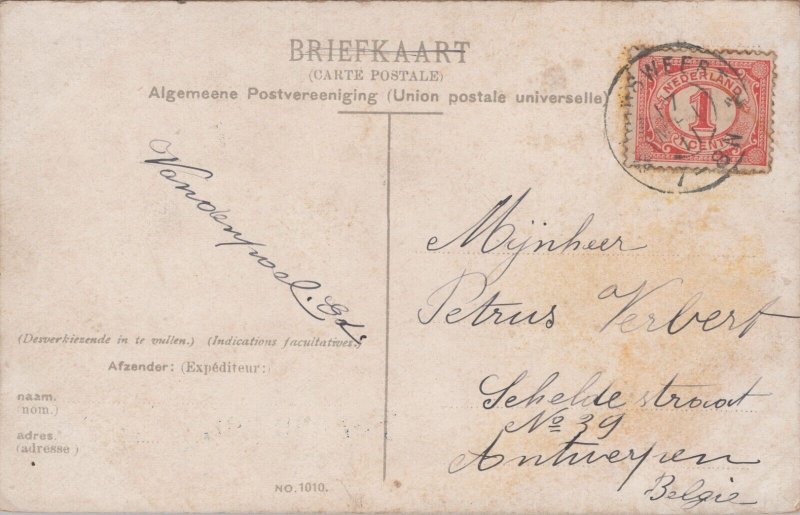 BRIEFKAART
(CARTE POSTALE)
Algemeene Postvereeniging (Union postale universelle)
NEDERLAND
1
Vandenpoel. Ed.
Mijnheer
Petrus Verbert
Schelde straat
No 39
Antwerpen
Belgie
(Desverkiezende in te vullen.) (Indications facultatives.)
Afzender: (Expéditeur:)
naam.
(nom.)
adres.
(adresse)
NO. 1010.